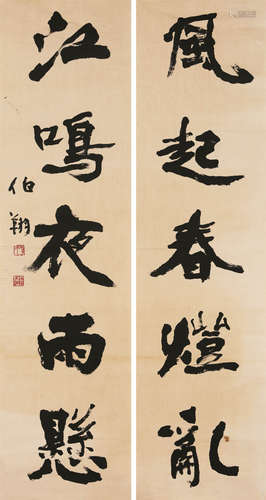 風起春燈亂
江鳴夜雨懸
伯翔